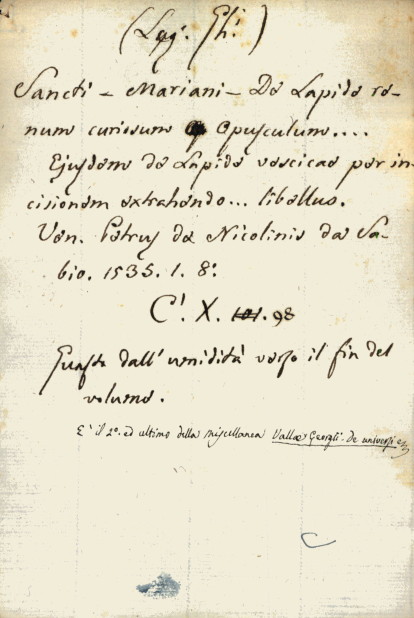 (Lug. Gh.)
Sancti - Mariani - De Lapide re-
num curiosum Opusculum....
Ejusdem de Lapide vescicae per in-
cisionem extrahendo... libellus.
Ven. Petrus de Nicolinis da Sa-
bio. 1535. 1. 8.º
C'. X. 101. 98
Guasto dall'umidità verso il fin del
volume.
E' il 2º. ed ultimo della miscellanea Vallae Georgii - de universi